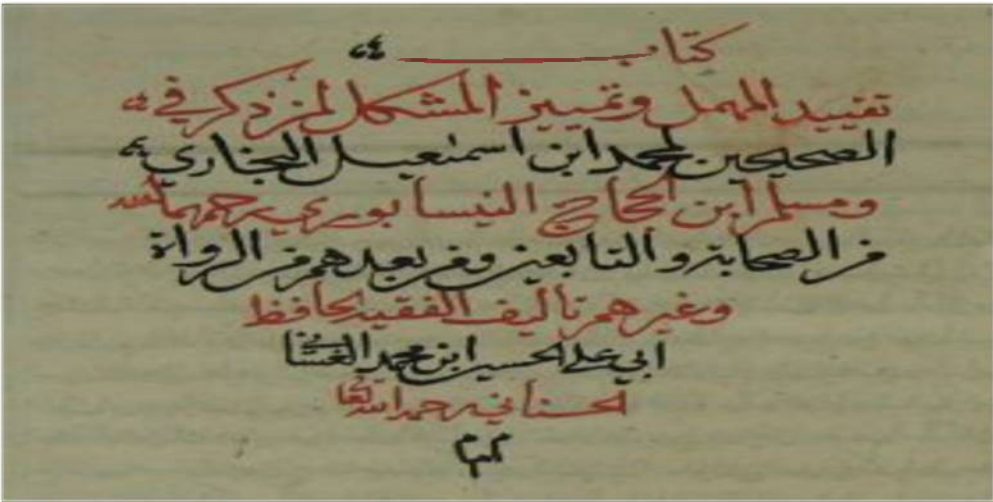 كتاب
تقييد المهمل وتمييز المشكل لمن ذكر في
الصحيحين لمحمد ابن اسمعيل البخاري
ومسلم ابن الحجاج النيسابوري رحمهما الله
من الصحابة والتابعين ومن بعدهم من الرواة
وغيرهم تأليف الفقيه الحافظ
ابي علي الحسين ابن محمد الغساني
رحمه الله